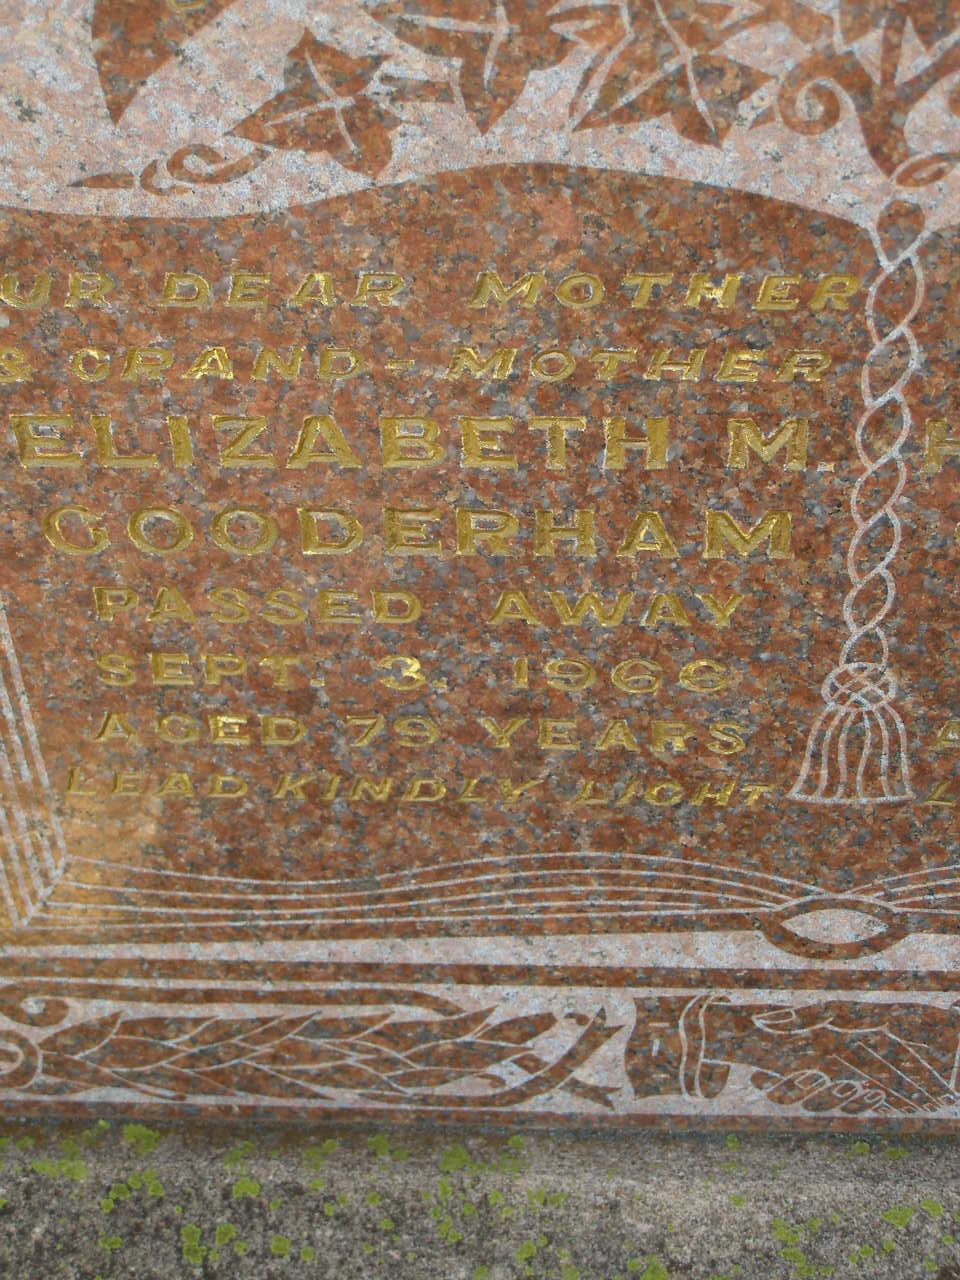 UR DEAR MOTHER
& GRAND-MOTHER
ELIZABETH M.
GOODERHAM
PASSED AWAY
SEPT. 3. 1966
AGED 79 YEARS
LEAD KINDLY LIGHT